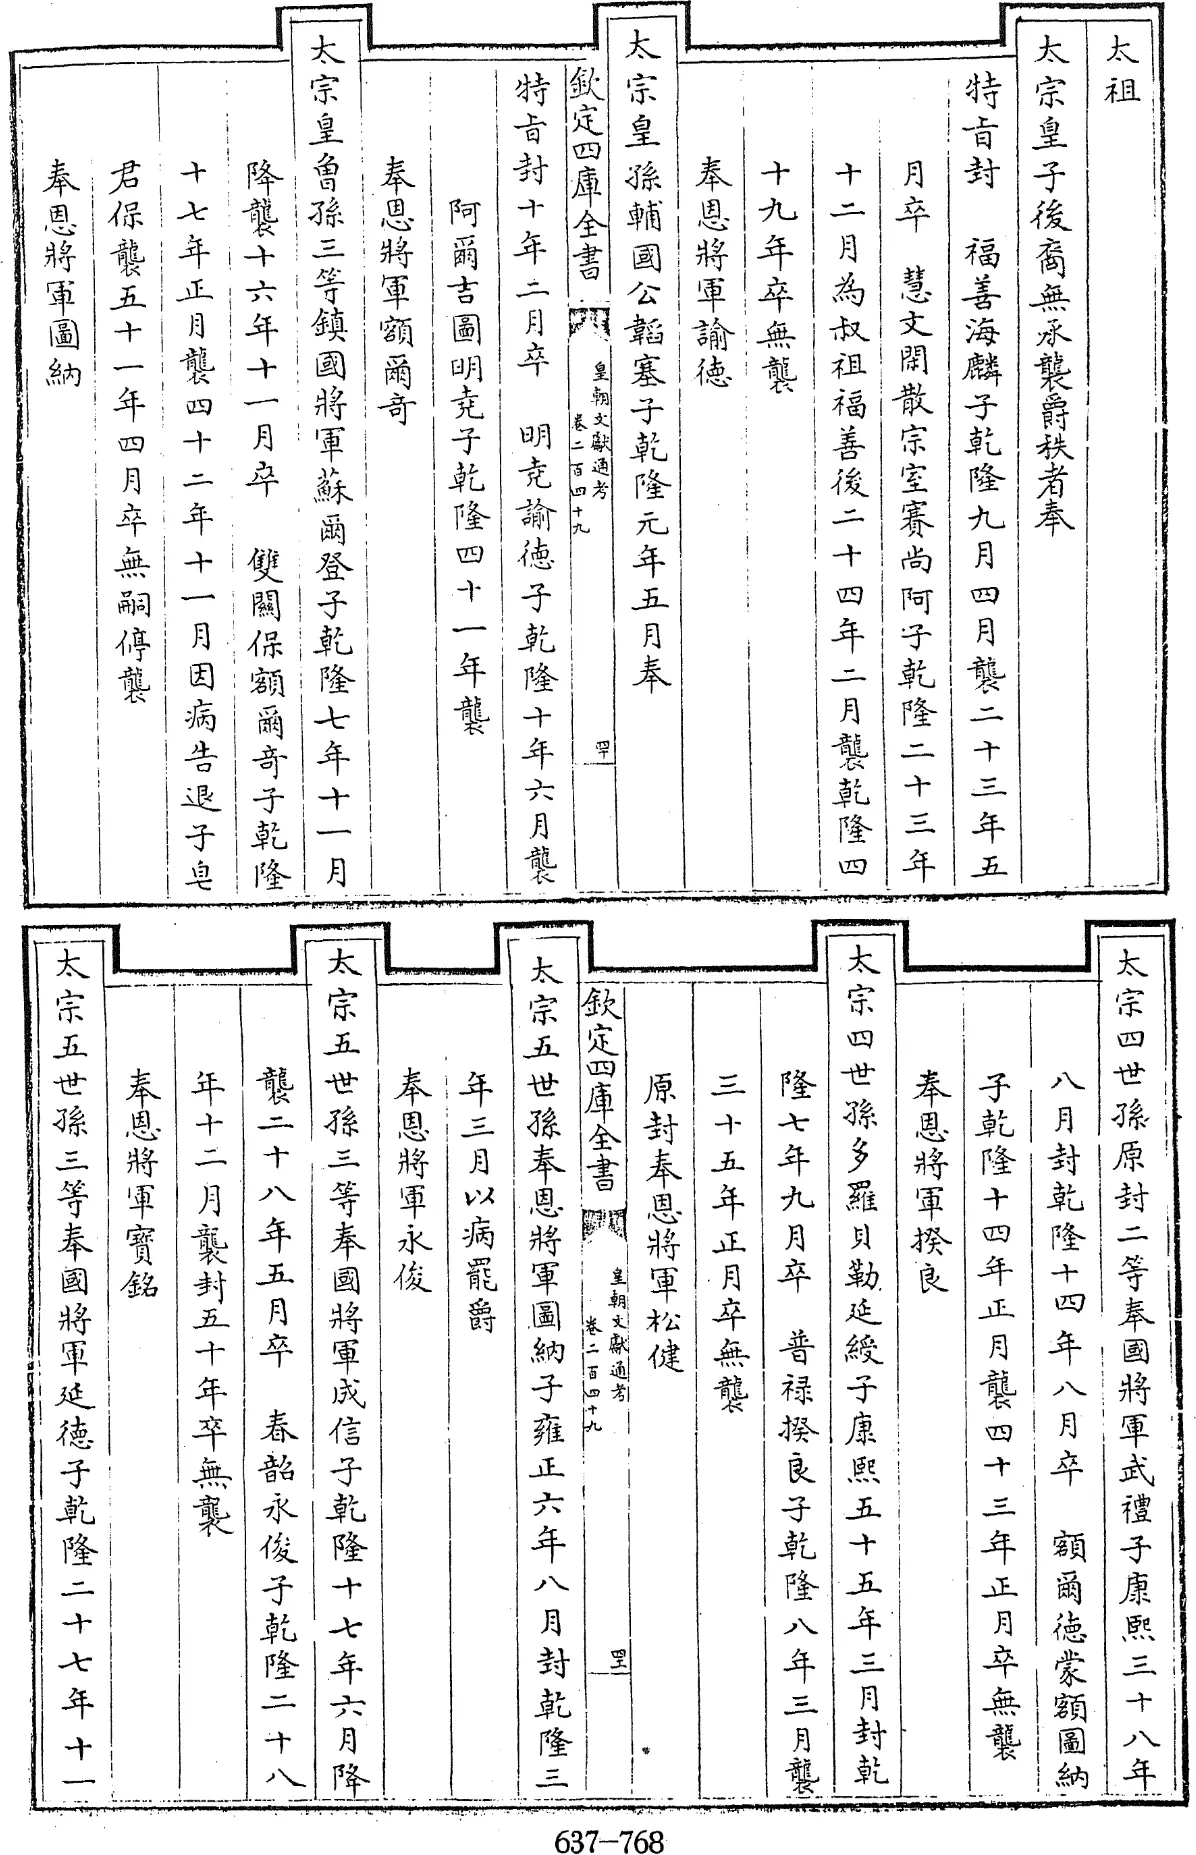 太祖
太宗皇子後裔無承襲爵秩者奉
特旨封　福善海麟子乾隆九月四月襲二十三年五
月卒　慧文閑散宗室賽尚阿子乾隆二十三年
十二月為叔祖福善後二十四年二月襲乾隆四
十九年卒無襲
奉恩將軍諭德
太宗皇孫輔國公韜塞子乾隆元年五月奉
欽定四庫全書
皇朝文獻通考
卷二百四十九
四十
特旨封十年二月卒　明堯諭德子乾隆十年六月襲
阿爾吉圖明堯子乾隆四十一年襲
奉恩將軍額爾奇
太宗皇曾孫三等鎮國將軍蘇爾登子乾隆七年十一月
降襲十六年十一月卒　雙關保額爾奇子乾隆
十七年正月襲四十二年十一月因病告退子皂
君保襲五十一年四月卒無嗣停襲
奉恩將軍圖納
太宗四世孫原封二等奉國將軍武禮子康熙三十八年
八月封乾隆十四年八月卒　額爾德蒙額圖納
子乾隆十四年正月襲四十三年正月卒無襲
奉恩將軍揆良
太宗四世孫多羅貝勒延綬子康熙五十五年三月封乾
隆七年九月卒　普祿揆良子乾隆八年三月襲
三十五年正月卒無襲
原封奉恩將軍松健
欽定四庫全書
皇朝文獻通考
卷二百四十九
四十一
太宗五世孫奉恩將軍圖納子雍正六年八月封乾隆三
年三月以病罷爵
奉恩將軍永俊
太宗五世孫三等奉國將軍成信子乾隆十七年六月降
襲二十八年五月卒　春韶永俊子乾隆二十八
年十二月襲封五十年卒無襲
奉恩將軍寶銘
太宗五世孫三等奉國將軍延德子乾隆二十七年十一
637-768